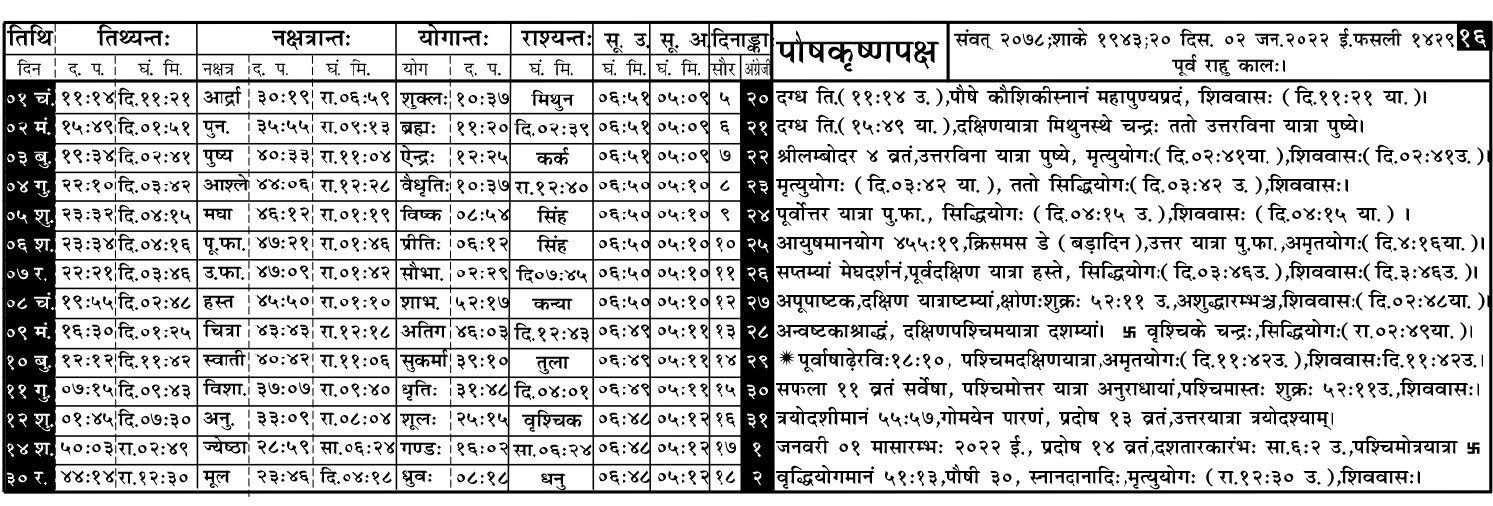 तिथि तिथ्यन्तः नक्षत्रान्तः योगान्तः राश्यन्तः सू. उ. सू. अ. दिनाङ्का पौषकृष्णपक्ष संवत् २०७८;शाके १९४३;२० दिस. ०२ जन.२०२२ ई.फसली १४२९ १६
दिन द. प. घं. मि. नक्षत्र द. प. घं. मि. योग द. प. घं. मि. घं. मि. घं. मि. सौर अंग्रेजी पूर्व राहु कालः।
०१ चं. ११:१४ दि.११:२१ आर्द्रा ३०:१९ रा.०६:५९ शुक्लः १०:३७ मिथुन ०६:५१ ०५:०९ ५ २० दग्ध ति.( ११:१४ उ. ),पौषे कौशिकीस्नानं महापुण्यप्रदं, शिववासः ( दि.११:२१ या. )।
०२ मं. १५:४९ दि.०१:५१ पुन. ३५:५५ रा.०९:१३ ब्रह्मः ११:२० दि.०२:३९ ०६:५१ ०५:०९ ६ २१ दग्ध ति.( १५:४९ या. ),दक्षिणयात्रा मिथुनस्थे चन्द्रः ततो उत्तरविना यात्रा पुष्ये।
०३ बु. १९:३४ दि.०२:४१ पुष्य ४०:३३ रा.११:०४ ऐन्द्रः १२:२५ कर्क ०६:५१ ०५:०९ ७ २२ श्रीलम्बोदर ४ व्रतं,उत्तरविना यात्रा पुष्ये, मृत्युयोगः( दि.०२:४१या. ),शिववासः( दि.०२:४१उ. )।
०४ गु. २२:१० दि.०३:४२ आश्ले ४४:०६ रा.१२:२८ वैधृतिः १०:३७ रा.१२:४० ०६:५० ०५:१० ८ २३ मृत्युयोगः ( दि.०३:४२ या. ), ततो सिद्धियोगः( दि.०३:४२ उ. ),शिववासः।
०५ शु. २३:३२ दि.०४:१५ मघा ४६:१२ रा.०१:१९ विष्क ०८:५४ सिंह ०६:५० ०५:१० ९ २४ पूर्वोत्तर यात्रा पु.फा., सिद्धियोगः ( दि.०४:१५ उ. ),शिववासः ( दि.०४:१५ या. ) ।
०६ श. २३:३४ दि.०४:१६ पू.फा. ४७:२१ रा.०१:४६ प्रीतिः ०६:१२ सिंह ०६:५० ०५:१० १० २५ आयुषमानयोग ४५५:१९,क्रिसमस डे ( बड़ादिन ),उत्तर यात्रा पु.फा.,अमृतयोगः( दि.४:१६या. )।
०७ र. २२:२१ दि.०३:४६ उ.फा. ४७:०९ रा.०१:४२ सौभा. ०२:२९ दि०७:४५ ०६:५० ०५:१० ११ २६ सप्तम्यां मेघदर्शनं,पूर्वदक्षिण यात्रा हस्ते, सिद्धियोगः( दि.०३:४६उ. ),शिववासः( दि.३:४६उ. )।
०८ चं. १९:५५ दि.०२:४८ हस्त ४५:५० रा.०१:१० शाभ. ५२:१७ कन्या ०६:५० ०५:१० १२ २७ अपूपाष्टक,दक्षिण यात्राष्टम्यां,क्षोणःशुक्रः ५२:११ उ.,अशुद्धारम्भञ्च,शिववासः( दि.०२:४८या. )।
०९ मं. १६:३० दि.०१:२५ चित्रा ४३:४३ रा.१२:१८ अतिग ४६:०३ दि.१२:४३ ०६:४९ ०५:११ १३ २८ अन्वष्टकाश्राद्धं, दक्षिणपश्चिमयात्रा दशम्यां। 卐 वृश्चिके चन्द्रः,सिद्धियोगः( रा.०२:४९या. )।
१० बु. १२:१२ दि.११:४२ स्वाती ४०:४२ रा.११:०६ सुकर्मा ३९:१० तुला ०६:४९ ०५:११ १४ २९ ✷पूर्वाषाढ़ेरविः१८:१०, पश्चिमदक्षिणयात्रा,अमृतयोगः( दि.११:४२उ. ),शिववासःदि.११:४२उ.।
११ गु. ०७:१५ दि.०९:४३ विशा. ३७:०७ रा.०९:४० धृतिः ३१:४८ दि.०४:०१ ०६:४९ ०५:११ १५ ३० सफला ११ व्रतं सर्वेषा, पश्चिमोत्तर यात्रा अनुराधायां,पश्चिमास्तः शुक्रः ५२:११उ.,शिववासः।
१२ शु. ०१:४५ दि.०७:३० अनु. ३३:०९ रा.०८:०४ शूलः २५:१५ वृश्चिक ०६:४८ ०५:१२ १६ ३१ त्रयोदशीमानं ५५:५७,गोमयेन पारणं, प्रदोष १३ व्रतं,उत्तरयात्रा त्रयोदश्याम्।
१४ श. ५०:०३ रा.०२:४९ ज्येष्ठा २८:५९ सा.०६:२४ गण्डः १६:०२ सा.०६:२४ ०६:४८ ०५:१२ १७ १ जनवरी ०१ मासारम्भः २०२२ ई., प्रदोष १४ व्रतं,दशतारकारंभः सा.६:२ उ.,पश्चिमोत्रयात्रा 卐
३० र. ४४:१४ रा.१२:३० मूल २३:४६ दि.०४:१८ ध्रुवः ०८:१८ धनु ०६:४८ ०५:१२ १८ २ वृद्धियोगमानं ५१:१३,पौषी ३०, स्नानदानादिः,मृत्युयोगः ( रा.१२:३० उ. ),शिववासः।